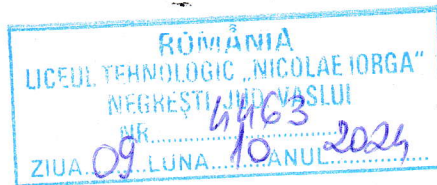 ROMÂNIA
LICEUL TEHNOLOGIC „NICOLAE IORGA"
NEGREȘTI, JUD. VASLUI
NR. 4463
ZIUA. 09 LUNA. 10 ANUL 2024